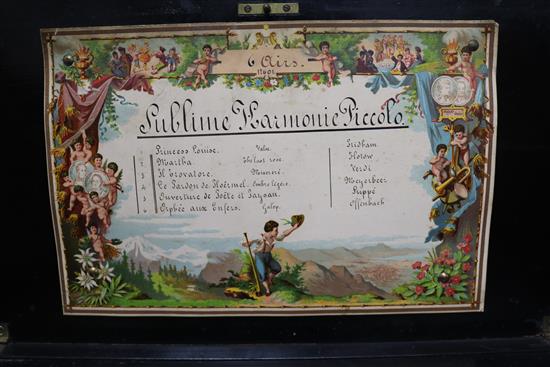 6 Airs.
Sublime Harmonie Piccolo.
1 Princess Louise. Valse.
2 Martha The last rose. Flotow
3 Il trovatore. Miserere. Verdi
4 Le Pardon de Ploërmel. Ombre légère. Meyerbeer
5 Ouverture de Poëte et Paysan. Suppé
6 Orphée aux Enfers. Galop. Offenbach